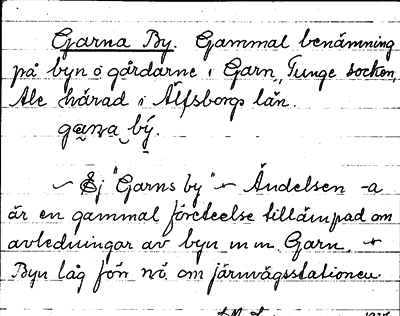 Garna By. Gammal benämning
på byn o gårdarne i Garn, Tunge socken,
Ale härad i Älfsborgs län.
gaṇa bý.
Ej "Garns by" Ändelsen -a
är en gammal företeelse tillämpad om
avledningar av byn m m Garn.
Byn låg förr nö. om järnvägsstationen